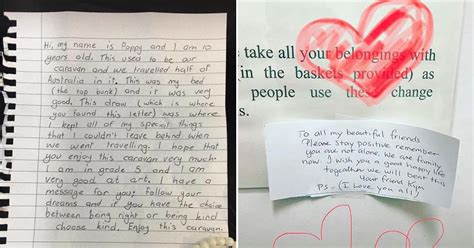 Hi, my name is Poppy and I am 10
years old. This used to be our
caravan and we travelled half of
Australia in it. This was my bed
(the top bunk) and it was very
good. This draw (which is where
you found this letter) was where
I kept all of my special things
that I couldn't leave behind when
we went travelling. I hope that
you enjoy this caravan very much
I am in grade 5 and I am
very good at art. I have a
message for you; follow your
dreams and if you have the choice
between being right or being kind
choose kind. Enjoy this caravan.
take all your belongings with
(in the baskets provided) as
people use these change
s.
To all my beautiful friends
Please stay positive remember
you are not alone. We are family
now I wish you a good happy life
together we will beat this
Your friend Kym
PS - (I Love you all)